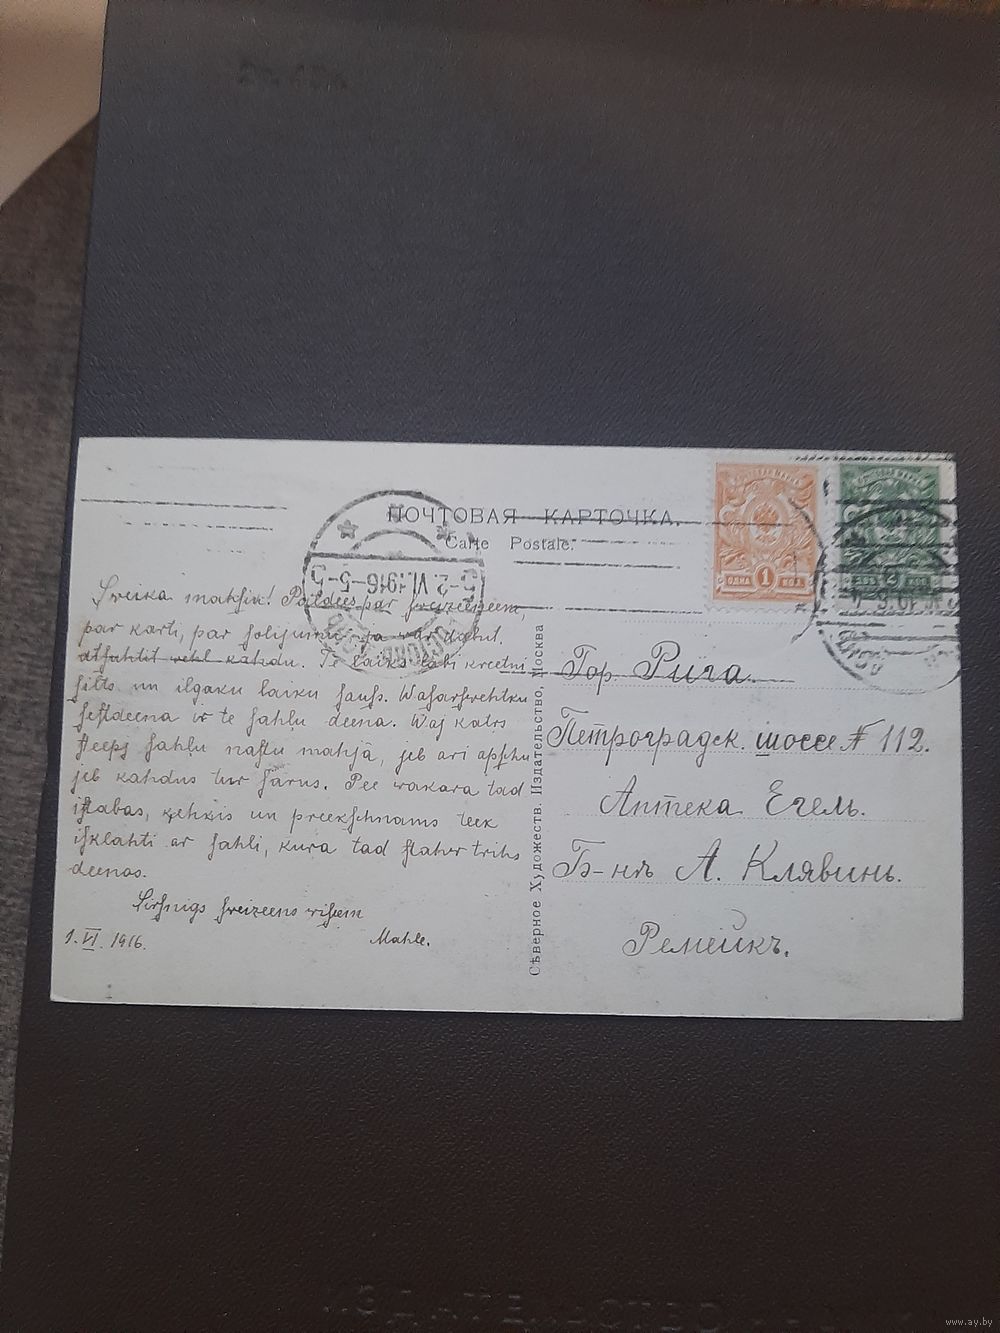 ПОЧТОВАЯ КАРТОЧКА.
Carte Postale.
ОДНА 1 КОП.
2
5-2. VI. 1916-5-5
Sweika mahsiņ! Paldees par sweizeeneem,
par karti, par solijumu
atsuhtit wehl kahdu. Te laiks labi
silts un ilgaku laiku sauss. Wasarswehtku
sestdeena ir te sahļu deena. Waj katrs
steeps sahļu nastu mahjā, jeb ari
jeb kahdus tur sarus. Pee wakara tad
istabas, ķehķis un preekschnams teek
isklahti ar sahli, kura tad stahw trihs
deenas.
Sirsnigs sweizeens wiseem
1. VI. 1916. Mahle.
Сѣверное Художеств. Издательство, Москва
Гор. Рига.
Петроградск. шоссе № 112.
Аптека Егель.
Б-нъ А. Клявинь.
Ремейкъ.
www.ay.by